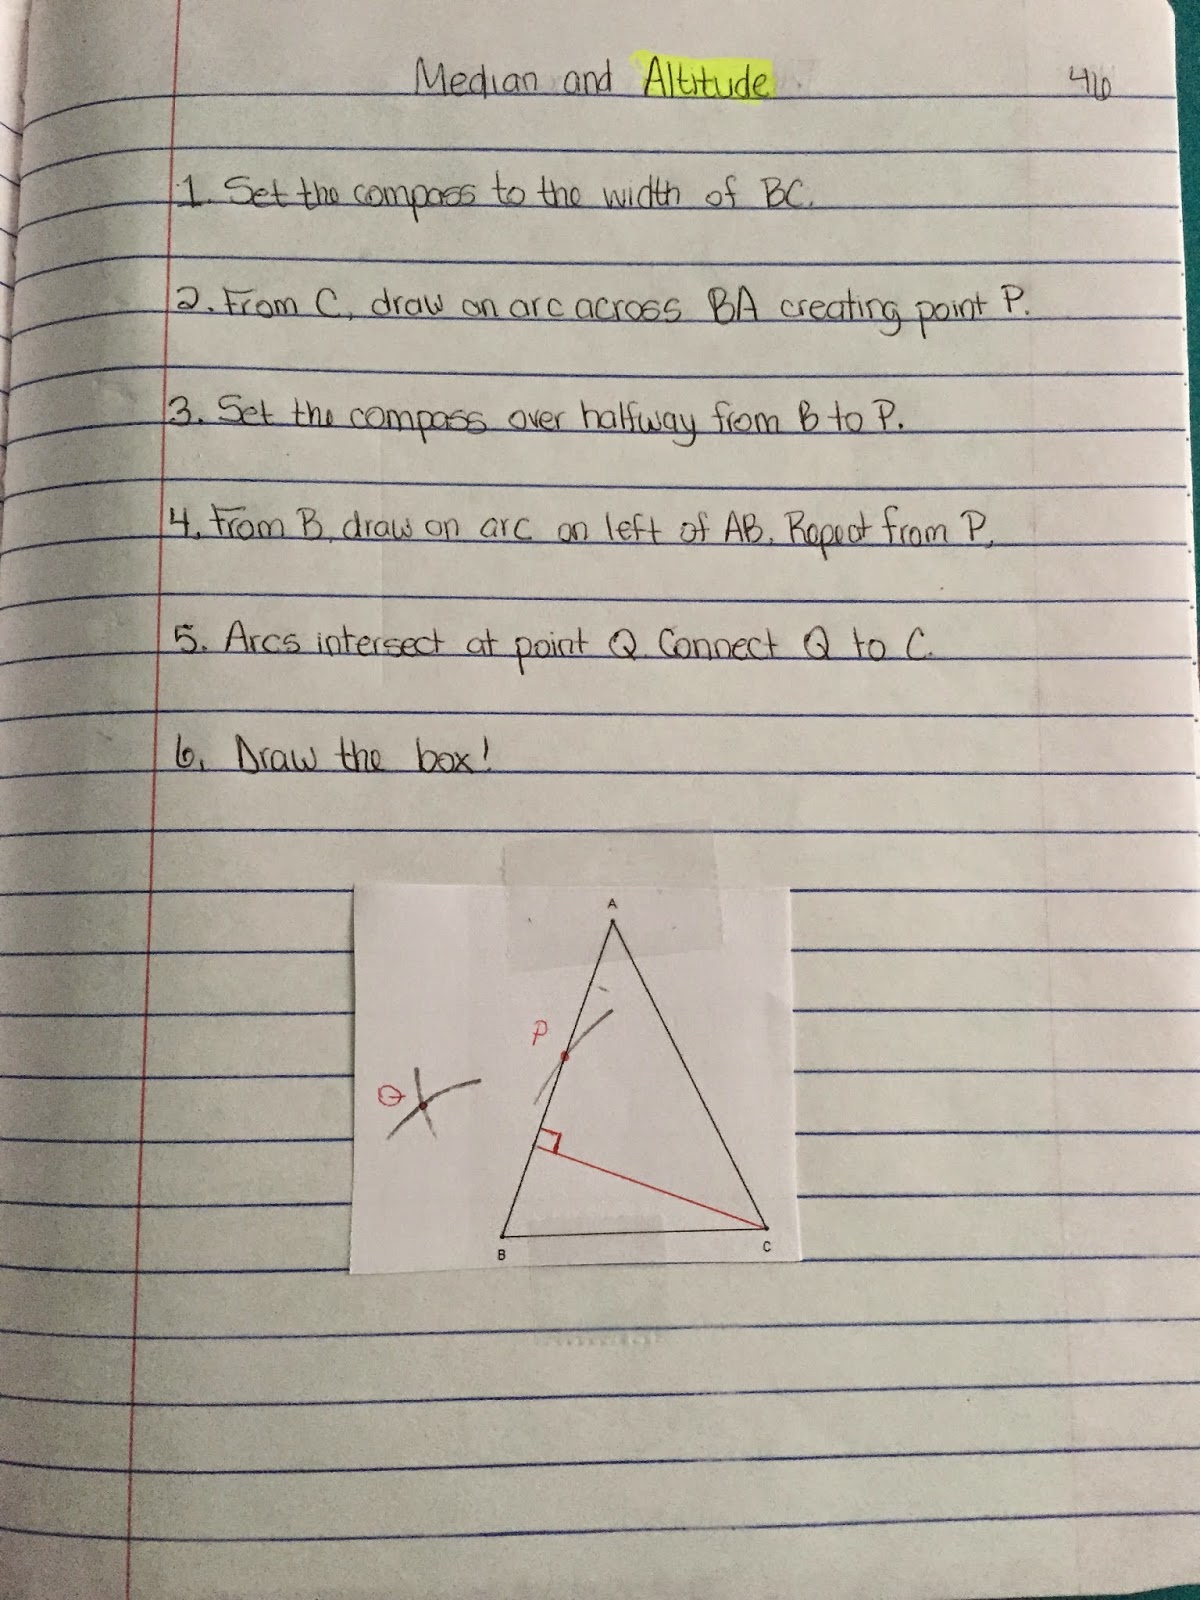 Median and Altitude
46
1. Set the compass to the width of BC.
2. From C, draw an arc across BA creating point P.
3. Set the compass over halfway from B to P.
4. From B, draw an arc on left of AB. Repeat from P.
5. Arcs intersect at point Q. Connect Q to C.
6. Draw the box!
A
P
Q
B
C